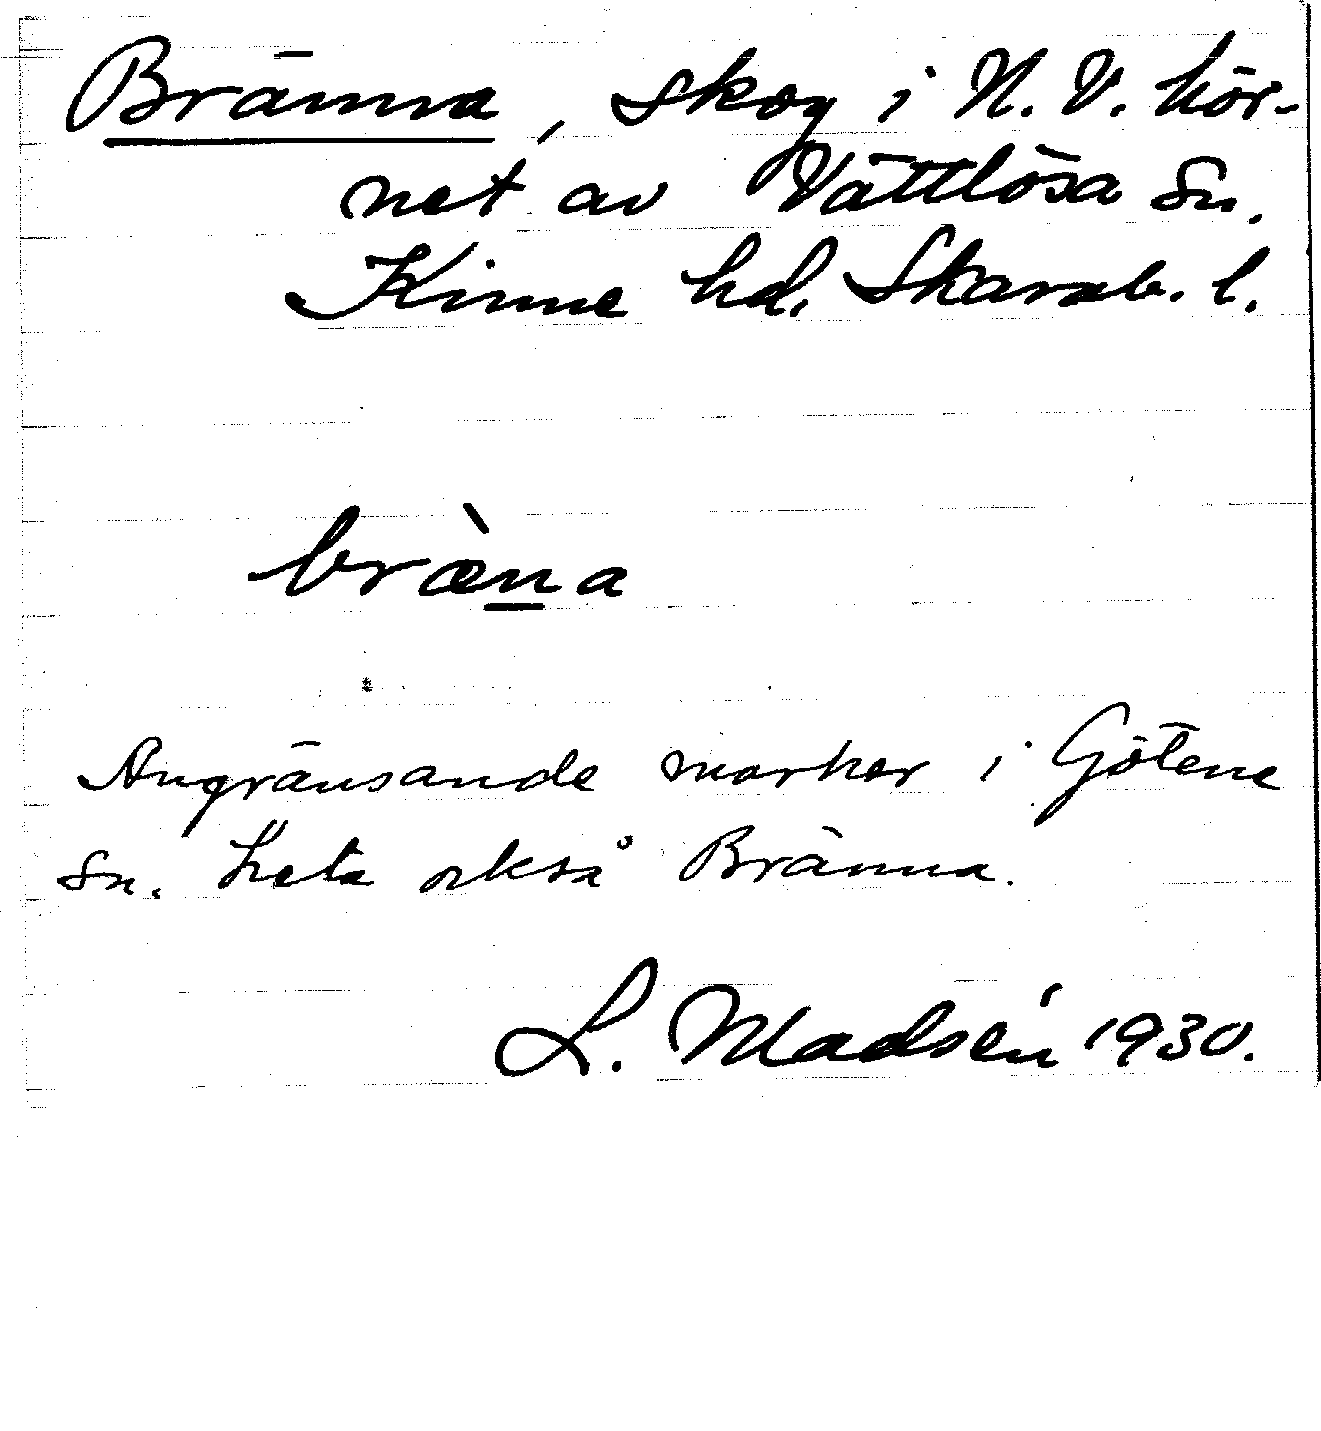 Bränna, skog i N.V. hör-
net av Vättlösa sn.
Kinne hd. Skarab. l.
bræ̀n̲a
Angränsande marker i Götene
sn. heta också Bränna.
L. Madsén 1930.